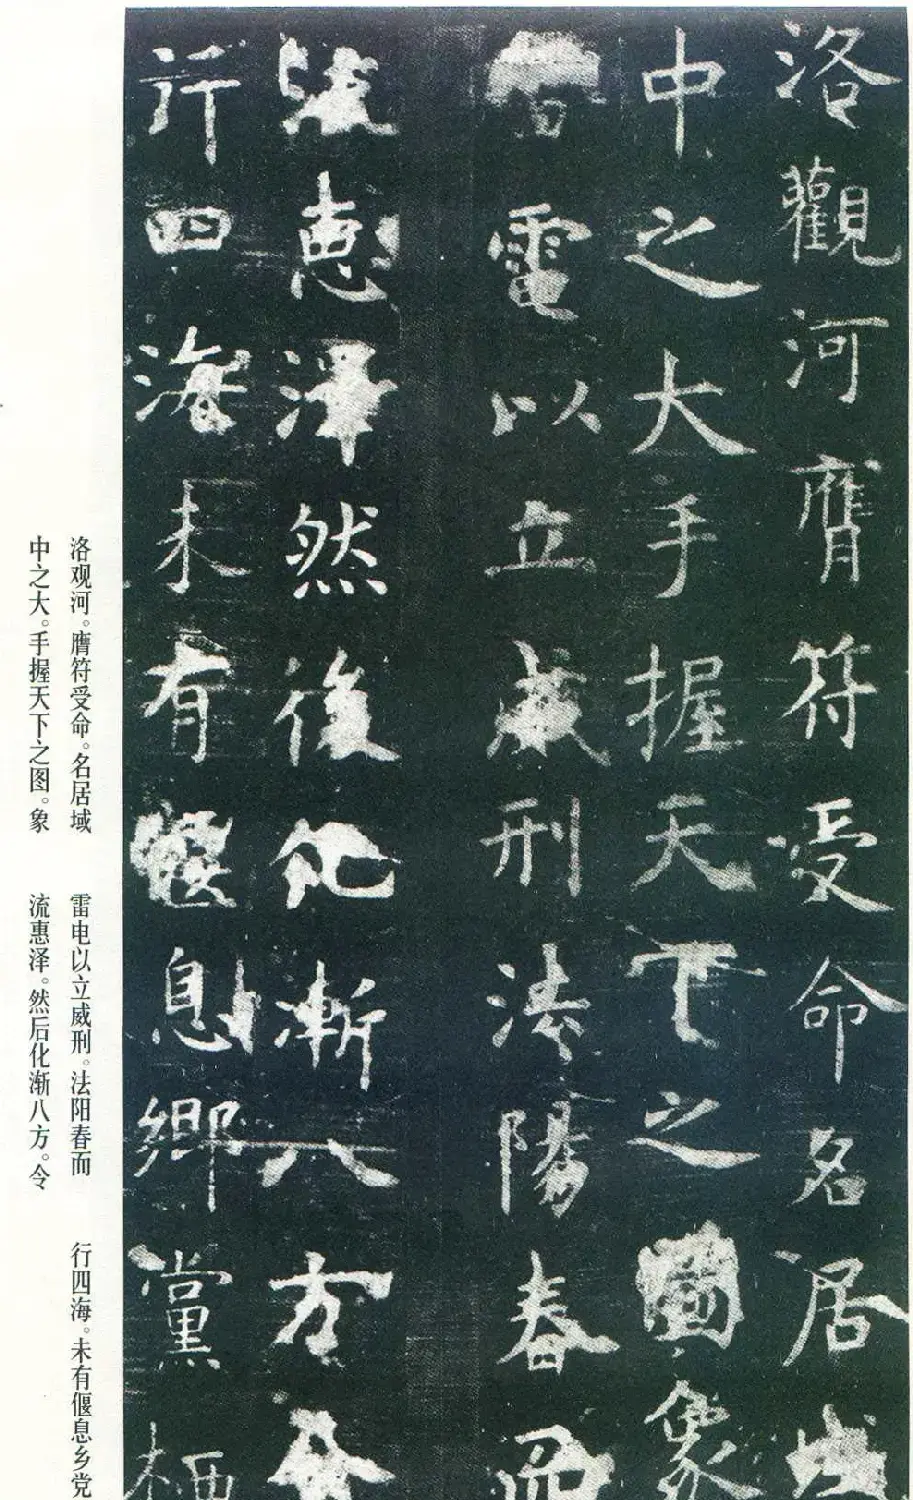 洛觀河膺符受命名居域
中之大手握天下之圖象
雷電以立威刑法陽春而
流惠澤然後化漸八方令
行四海未有偃息鄉黨栖
洛观河。膺符受命。名居域
中之大。手握天下之图。象
雷电以立威刑。法阳春而
流惠泽。然后化渐八方。令
行四海。未有偃息乡党